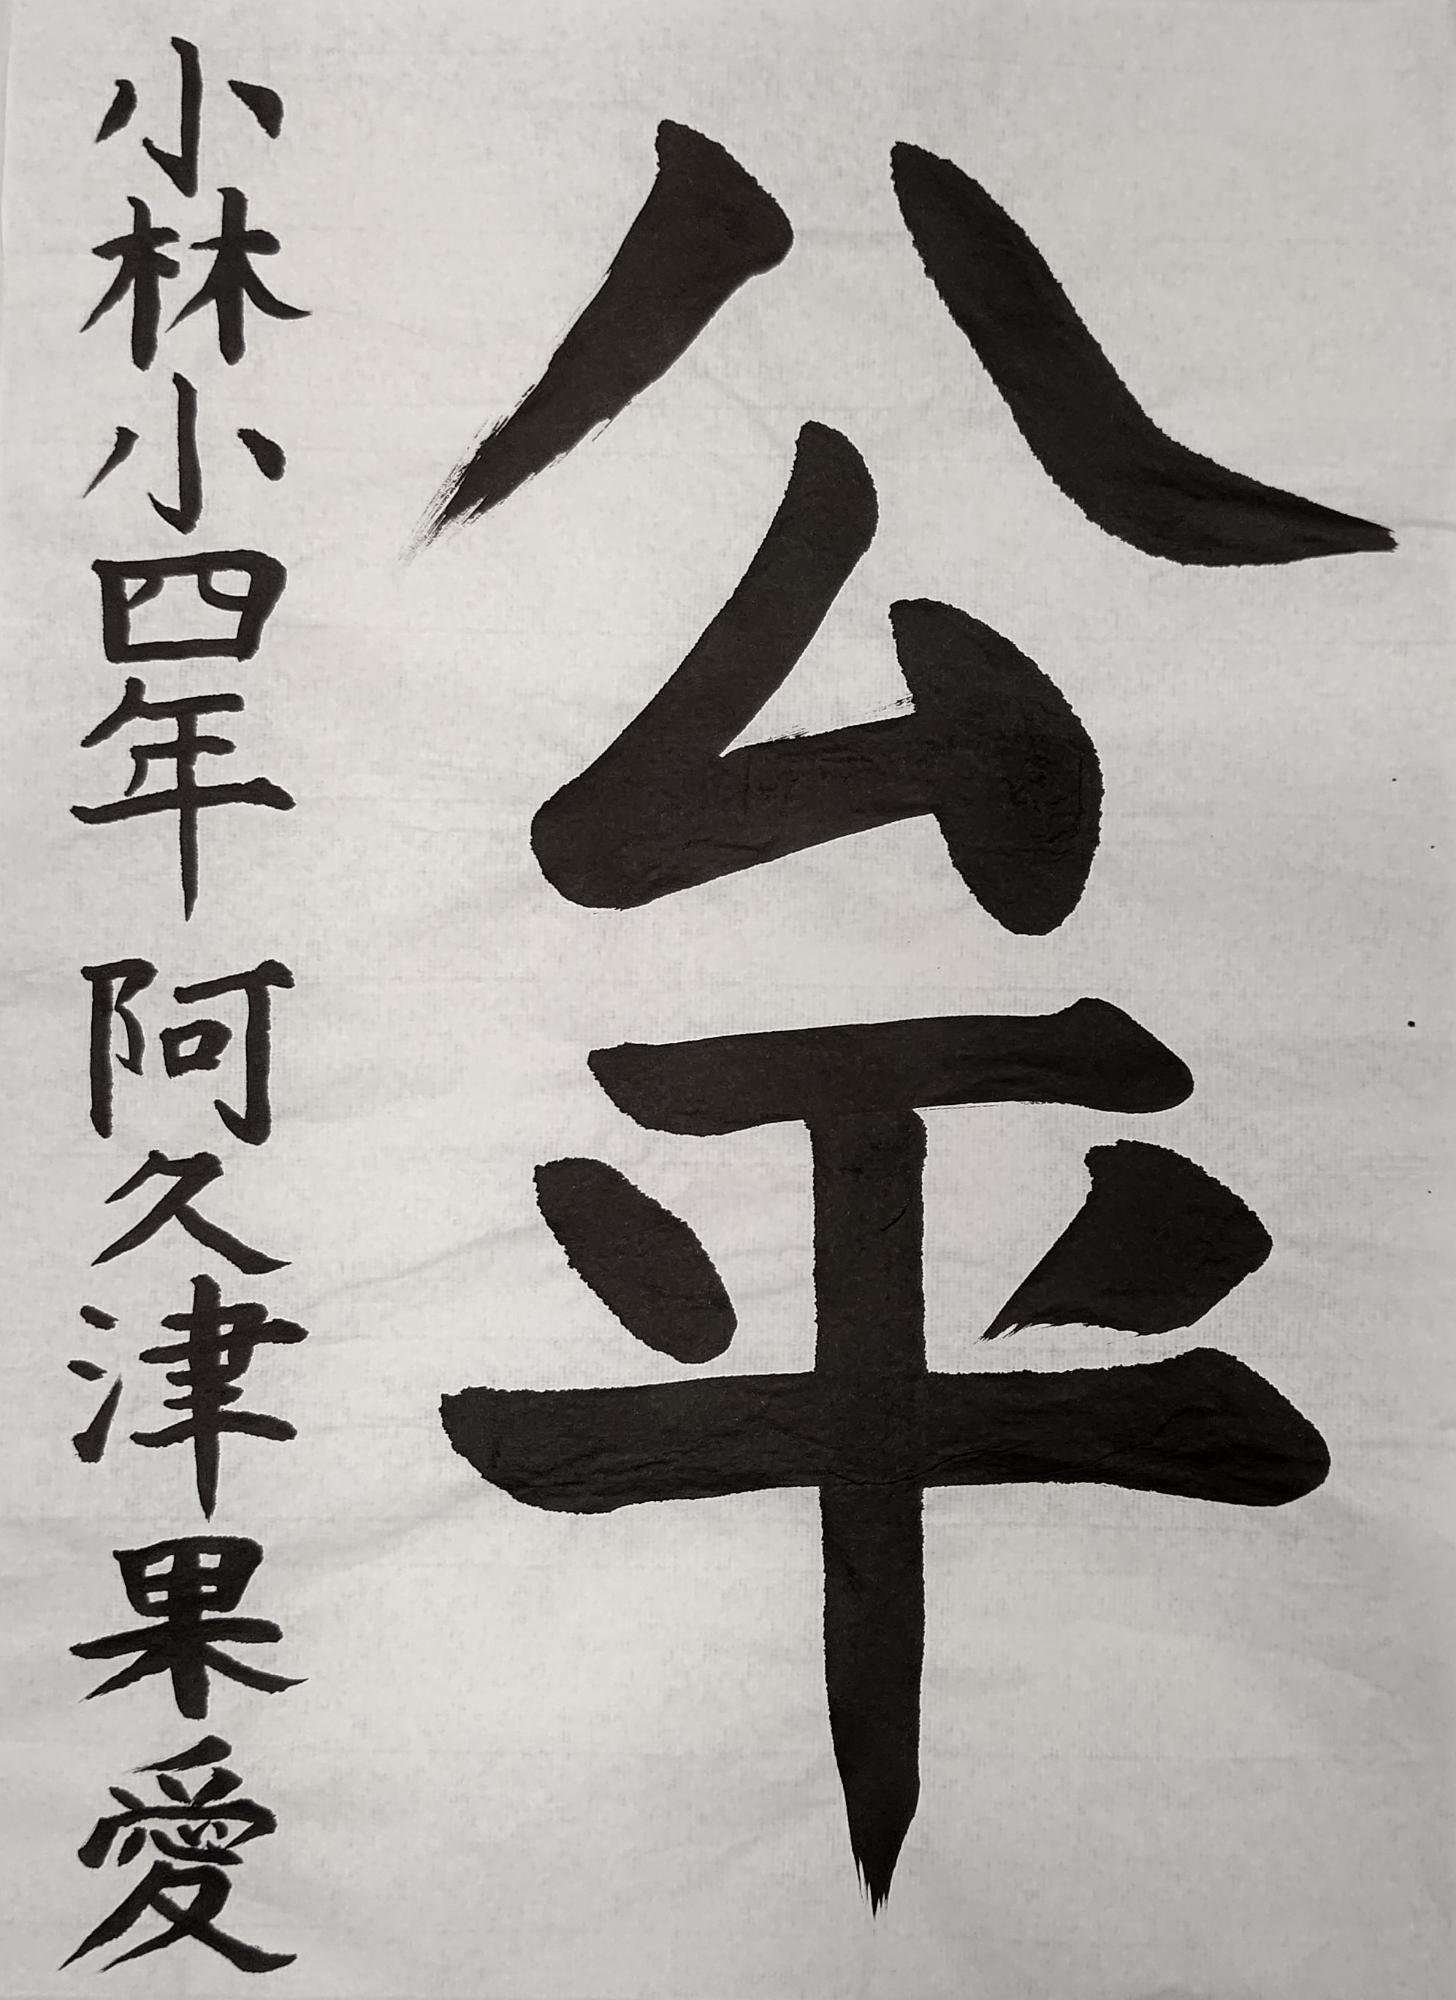 公平
小林小四年 阿久津果愛